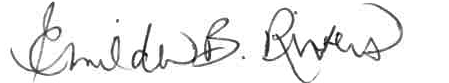 Emilda B. Rivers